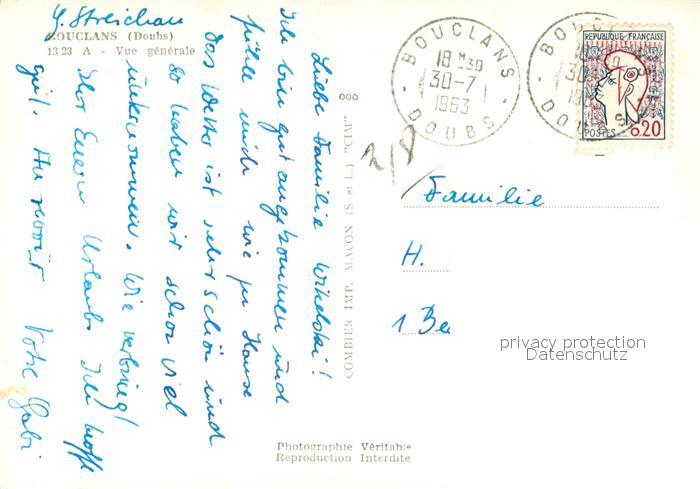 BOUCLANS (Doubs)
13 23 A - Vue générale
Liebe Familie
Ich bin gut angekommen und
fühle mich wie zu Hause
das Wetter ist sehr schön und
so haben wir schon viel
unternommen. Wie verbringt
Ihr Euern Urlaub? Ich hoffe
gut. Au revoir Votre Gabi
G. Streichan
ooo
COMBIER IMP. MACON (S. et L.) "CIM"
BOUCLANS
18 H 30
30-7
1963
DOUBS
BOUCLANS
30-7
DOUBS
REPUBLIQUE FRANCAISE
POSTES 0,20
2/8
Familie
H.
1 Be
privacy protection
Datenschutz
Photographie Véritable
Reproduction Interdite